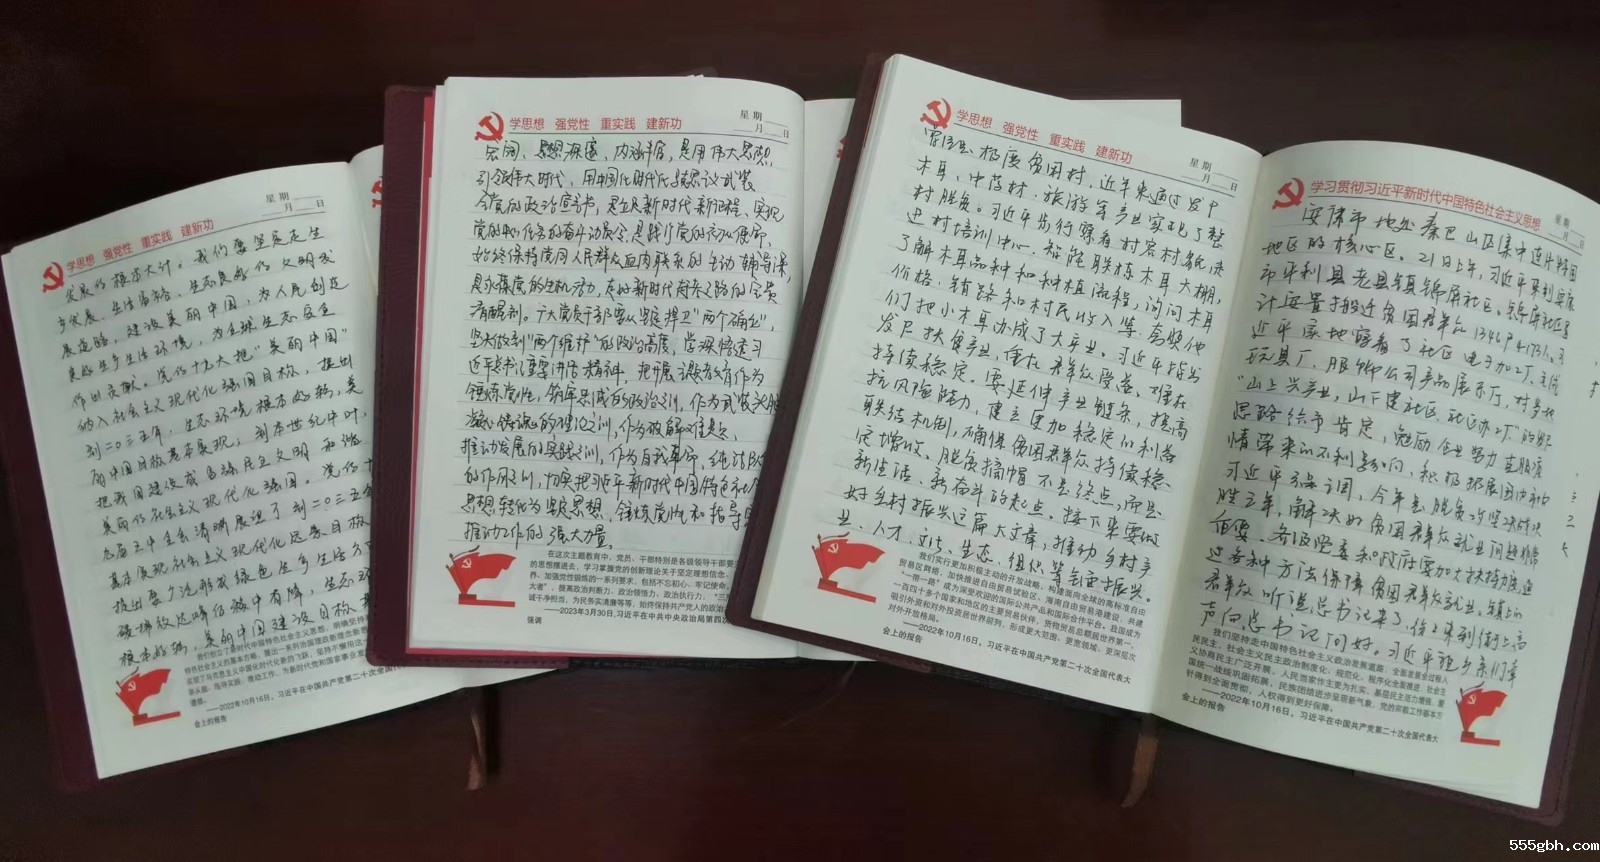 学思想 强党性 重实践 建新功
星期
月 日
发展的根本大计。我们要坚定走生
产发展、生活富裕、生态良好的文明发
展道路，建设美丽中国，为人民创造
良好生产生活环境，为全球生态安全
作出贡献。党的十九大把“美丽中国”
纳入社会主义现代化强国目标，提出
到二〇三五年，生态环境根本好转，美
丽中国目标基本实现；到本世纪中叶，
把我国建设成富强民主文明和谐
美丽的社会主义现代化强国。党的十
九届五中全会清晰展望了到二〇三五年
基本实现社会主义现代化远景目标
提出要广泛形成绿色生产生活方
碳排放达峰后稳中有降，生态环
根本好转，美丽中国建设目标基
——2022年10月16日，习近平在中国共产党第二十次全国代表大
会上的报告
学思想 强党性 重实践 建新功
星期
月 日
宏阔、思想深邃、内涵丰富，是用伟大思想
引领伟大时代，用中国化时代化马克思主义武装
全党的政治宣言书，是立足新时代新征程、实现
党的中心任务的奋斗动员令，是践行党的初心使命、
始终保持党同人民群众血肉联系的生动辅导课，
清醒剂。广大党员干部要从坚定捍卫“两个确立”，
坚决做到“两个维护”的政治高度，学深悟透习
近平总书记重要讲话精神，把开展主题教育作为
推动发展的实践之训，作为自我革命、纯洁队
的作风之训，切实把习近平新时代中国特色社
思想转化为坚定思想、锤炼党性和指导
推动工作的强大力量。
在这次主题教育中，党员、干部特别是各级领导干部要
的思想摆进去，学习掌握党的创新理论关于坚定理想信念、
界、加强党性锻炼的一系列要求，包括不忘初心、牢记使命，
大者”，提高政治判断力、政治领悟力、政治执行力，“三
诚干净担当，为民务实清廉等等，始终保持共产党人的政治
——2023年3月30日，习近平在中共中央政治局第四次
强调
学思想 强党性 重实践 建新功
星期
月 日
极度贫困村，近年来通过发中
木耳、中药材、旅游等产业实现了整
村脱贫。习近平步行察看村容村貌，走
进村培训中心、智能联栋木耳大棚，
了解木耳品种和种植流程，询问木耳
价格、销路和村民收入等，夸奖他
们把小木耳办成了大产业。习近平指出
发展扶贫产业，重在群众受益，难在
持续稳定。要延伸产业链条，提高
抗风险能力，建立更加稳定的利益
联结机制，确保贫困群众持续稳
定增收。脱贫摘帽不是终点，而是
新生活、新奋斗的起点。接下来要做
好乡村振兴这篇大文章，推动乡村产
业、人才、文化、生态、组织等全面振兴。
我们实行更加积极主动的开放战略，构建面向全球的高标准自由
贸易区网络，加快推进自由贸易试验区、海南自由贸易港建设，共建
“一带一路”成为深受欢迎的国际公共产品和国际合作平台。我国成为
一百四十多个国家和地区的主要贸易伙伴，货物贸易总额居世界第一，
吸引外资和对外投资居世界前列，形成更大范围、更宽领域、更深层次
对外开放格局。
——2022年10月16日，习近平在中国共产党第二十次全国代表大
会上的报告
学习贯彻习近平新时代中国特色社会主义思想
星期
月 日
安康市地处秦巴山区集中连片特困
地区的核心区。21日上午，习近平来到安康
市平利县老县镇锦屏社区。锦屏社区
计安置搬迁贫困群众1346户4173人。习
近平实地察看了社区电子加工厂、毛绒
玩具厂、服饰公司产品展示厅，对当地
“山上兴产业，山下建社区，社区办工厂”的发展
思路给予肯定，勉励企业努力克服疫
情带来的不利影响，积极拓展国内和
习近平强调，今年是脱贫攻坚决战决
胜之年，解决好贫困群众就业问题非常
重要。各级党委和政府要加大扶持力度，通
过各种方法保障贫困群众就业。镇上的
群众听说总书记来了，纷纷来到街上高
声向总书记问好。习近平祝乡亲们幸
我们坚持走中国特色社会主义政治发展道路，全面发展全过程人
民民主，社会主义民主政治制度化、规范化、程序化全面推进，社会主
义协商民主广泛开展，人民当家作主更为扎实，基层民主活力增强，爱
国统一战线巩固拓展，民族团结进步呈现新气象，党的宗教工作基本方
针得到全面贯彻，人权得到更好保障。
——2022年10月16日，习近平在中国共产党第二十次全国代表大
会上的报告
555gbh.com